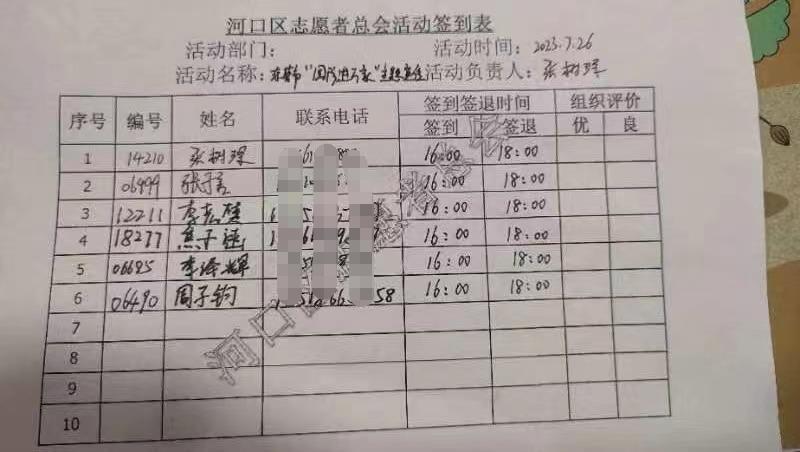 河口区志愿者总会活动签到表
活动部门: 活动时间: 2023.7.26
活动名称: 活动负责人: 张树琛
序号 编号 姓名 联系电话 签到签退时间 组织评价
签到 签退 优 良
1 14210 张树琛 16:00 18:00
2 06999 16:00 18:00
3 12211 16:00 18:00
4 18277 焦子涵 16:00 18:00
5 06695 李泽辉 16:00 18:00
6 06490 周子钧 58 16:00 18:00
7
8
9
10